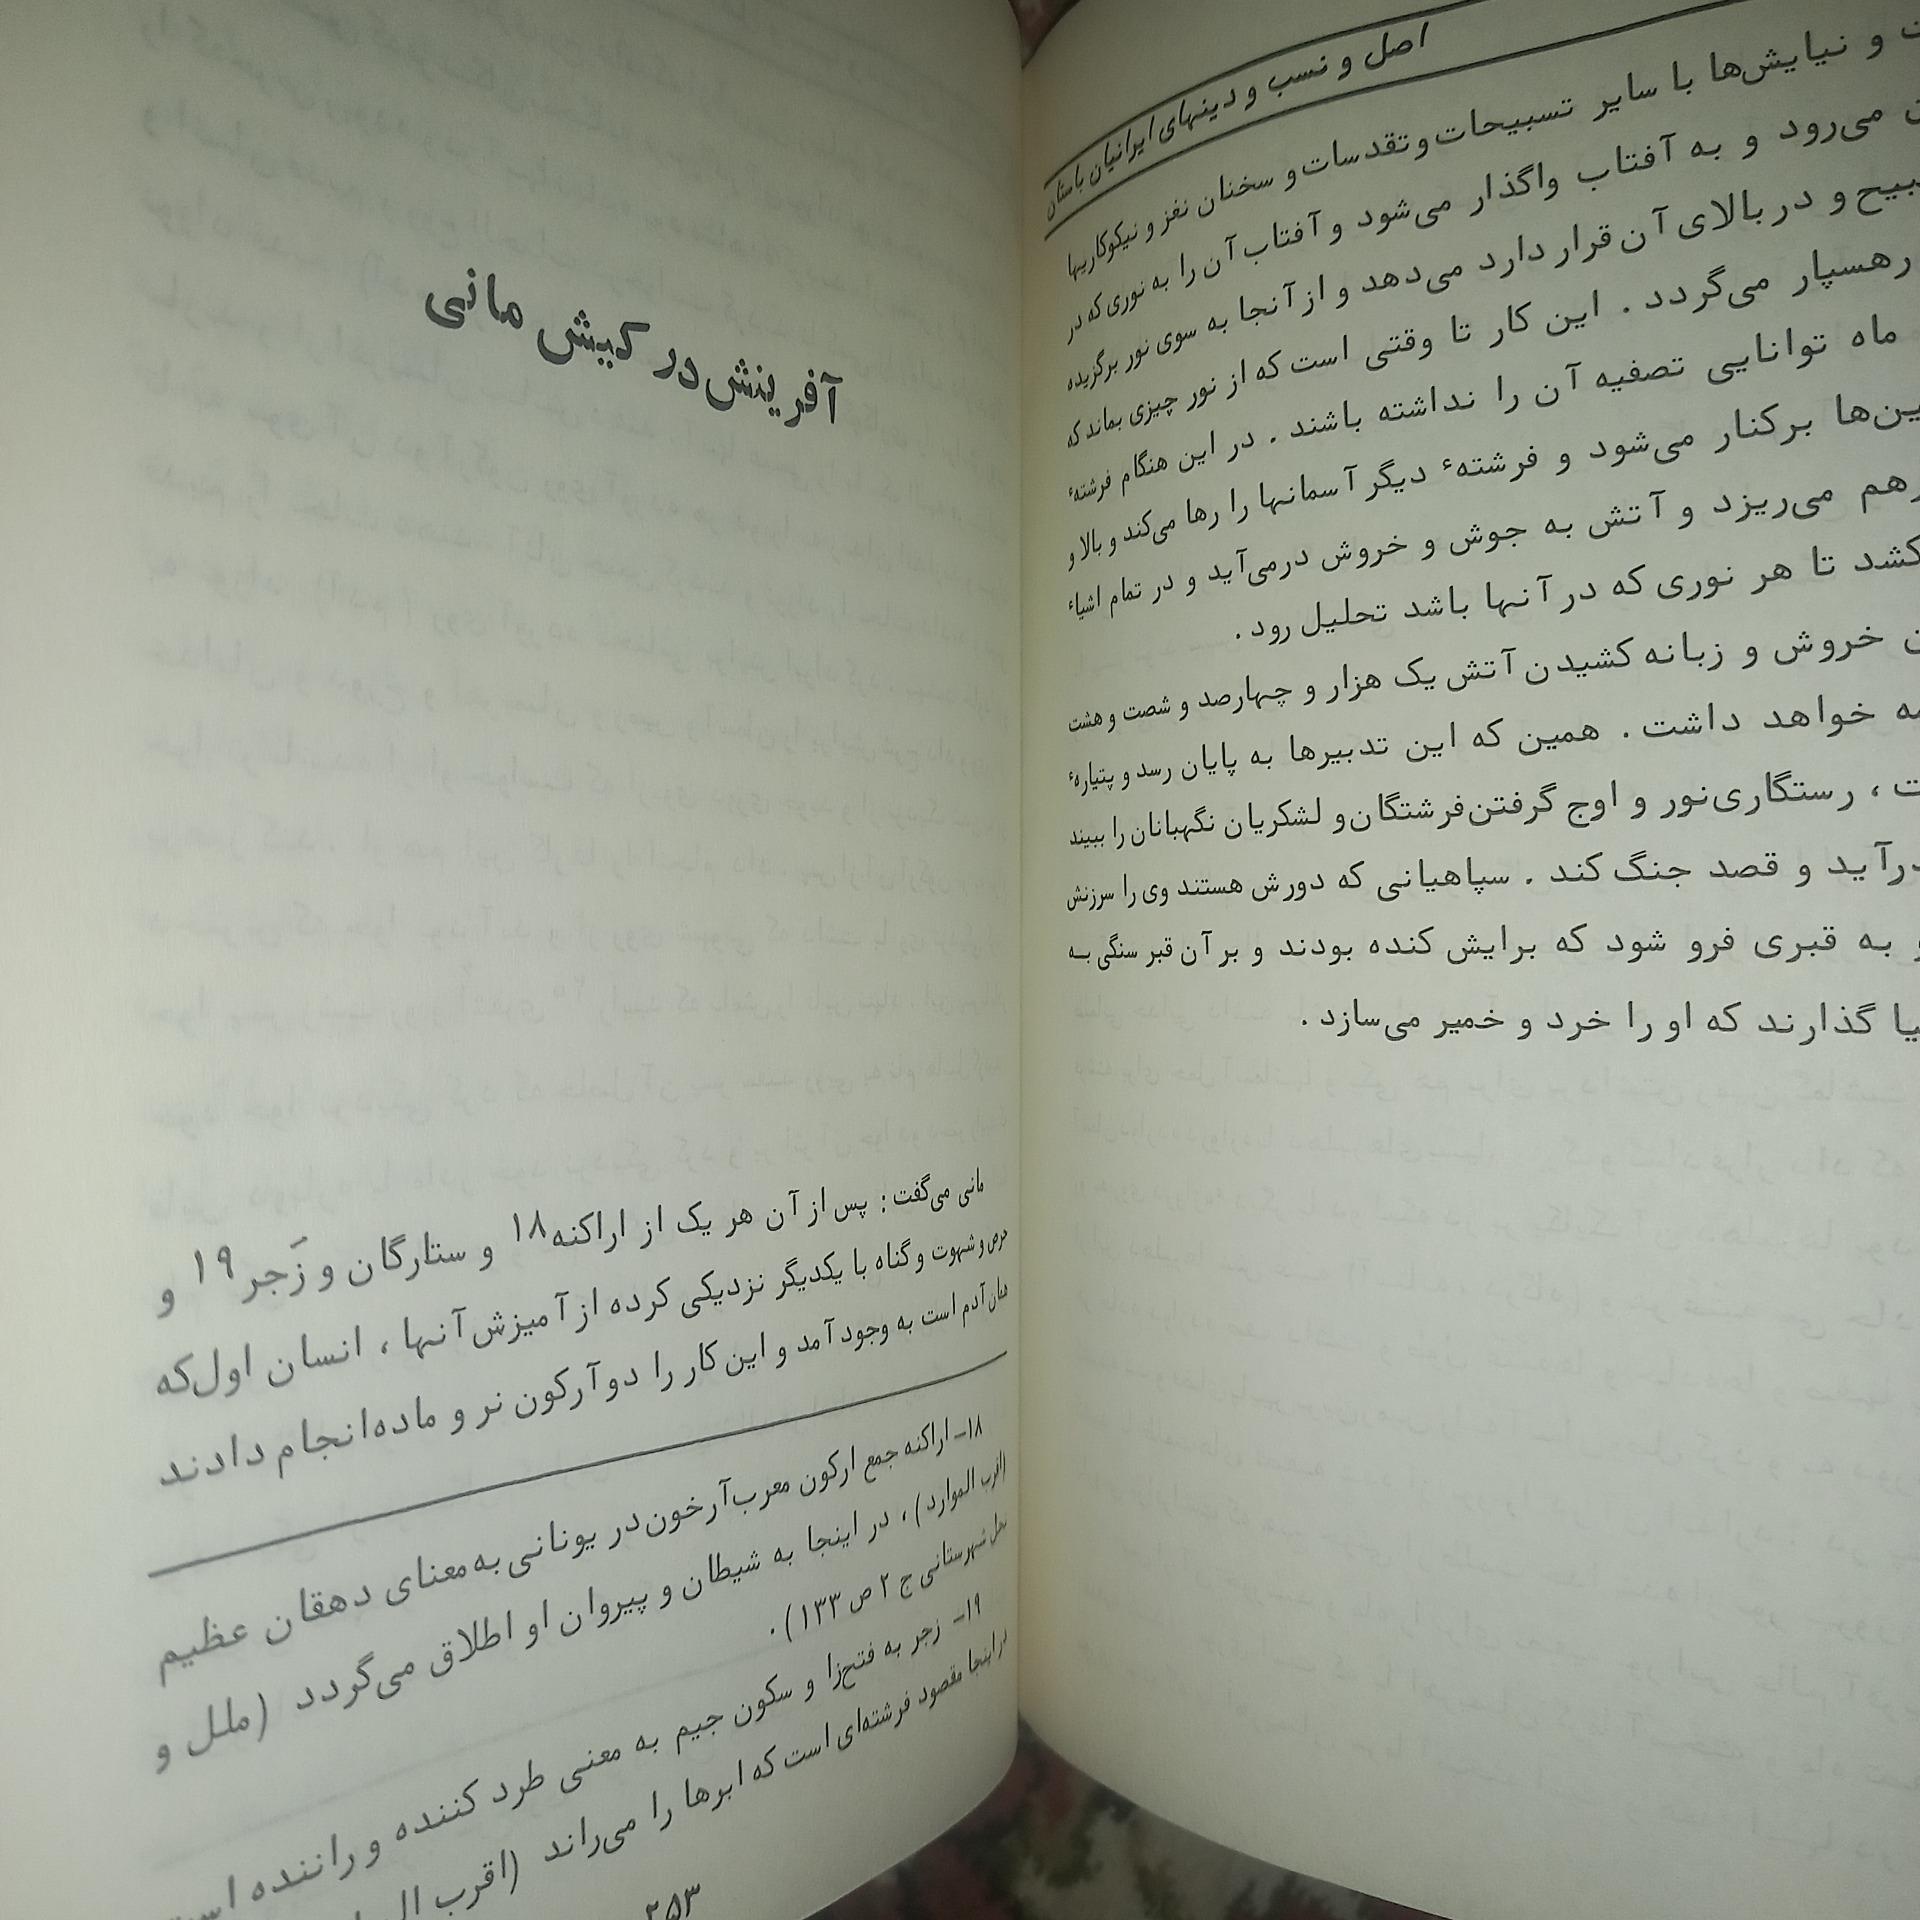 اصل و نسب و دینهای ایرانیان باستان
و نیایش‌ها با سایر تسبیحات و تقدسات و سخنان نغز و نیکوکاریها
می‌رود و به آفتاب واگذار می‌شود و آفتاب آن را به نوری که در
و در بالای آن قرار دارد می‌دهد و از آنجا به سوی نور برگزیده
رهسپار می‌گردد . این کار تا وقتی است که از نور چیزی بماند که
ماه توانایی تصفیه آن را نداشته باشند . در این هنگام فرشتهٔ
برکنار می‌شود و فرشتهٔ دیگر آسمانها را رها می‌کند و بالا و
می‌ریزد و آتش به جوش و خروش درمی‌آید و در تمام اشیاء
تا هر نوری که در آنها باشد تحلیل رود .
خروش و زبانه کشیدن آتش یک هزار و چهارصد و شصت و هشت
خواهد داشت . همین که این تدبیرها به پایان رسد و پتیارهٔ
، رستگاری نور و اوج گرفتن فرشتگان و لشکریان نگهبانان را ببیند
و قصد جنگ کند . سپاهیانی که دورش هستند وی را سرزنش
به قبری فرو شود که برایش کنده بودند و بر آن قبر سنگی به
گذارند که او را خرد و خمیر می‌سازد .
آفرینش در کیش مانی
مانی می‌گفت : پس از آن هر یک از اراکنه۱۸ و ستارگان و زَجر۱۹ و
حرص و شهوت و گناه با یکدیگر نزدیکی کرده از آمیزش آنها ، انسان اول که
همان آدم است به وجود آمد و این کار را دو آرکون نر و ماده انجام دادند
۱۸ـ اراکنه جمع ارکون معرب آرخون در یونانی به معنای دهقان عظیم
(اقرب الموارد) ، در اینجا به شیطان و پیروان او اطلاق می‌گردد (ملل و
نحل شهرستانی ج ۲ ص ۱۳۳) .
۱۹ـ زجر به فتح زا و سکون جیم به معنی طرد کننده و راننده است
در اینجا مقصود فرشته‌ای است که ابرها را می‌راند (اقرب
۲۵۳